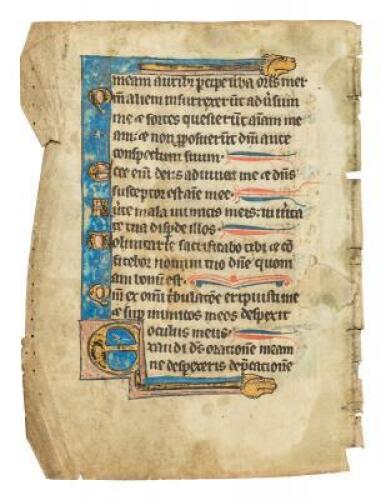 meam auribꝰ ꝑcipe uͥba oris mei
Qm̄ alieni insurrexerūt adūsum
me ⁊ fortes quesierūt aīam me
am: ⁊ non ꝓposuerūt dm̄ ante
conspectum suum.
Ecce enī deus adiuuat me ⁊ dn̄s
susceptor est aīe mee.
Auerte mala inimicis meis: in uerita
te tua dispde illos.
Voluntarie sacrificabo tibi ⁊ cō
fitebor nomini tuo dn̄e quoni
am bonum est.
Qm̄ ex omī tͥbulacōe eripuisti me
⁊ suꝑ inimicos meos despexit
oculus meus.
Exaudi ds̄ oracionē meam
ne despexeris dep̄cacionē